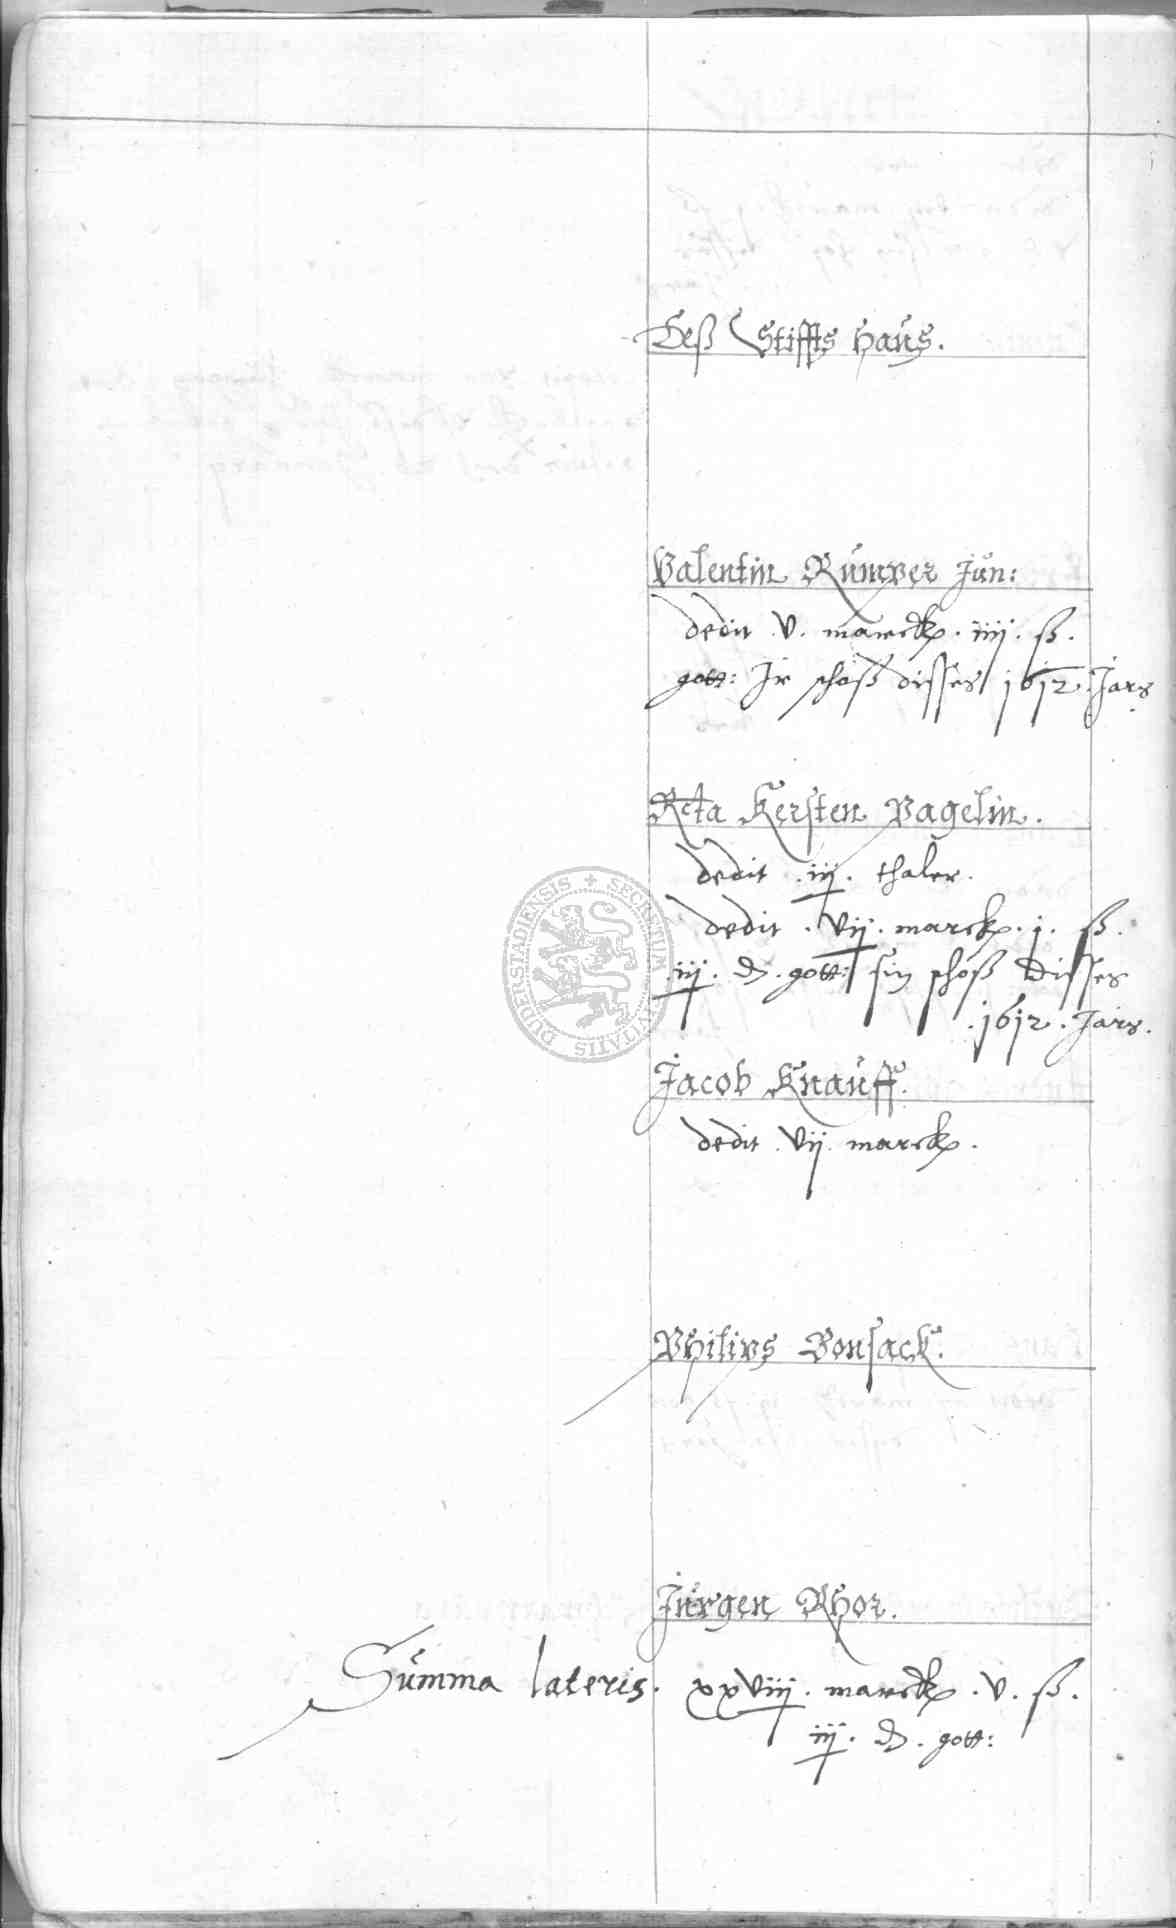 Deß Stiffts Haus.
Valentin Rumper Jun:
dedit .v. marck. iiij. ß.
gott: Jr schoß disses 1612 Jars
Rcta Kersten Pagelin.
dedit .iij. thaler.
dedit . vij. marck. j. ß.
.iij. d. gott: sin schoß disses
.1612. Jars.
Jacob Knauff.
dedit . vij. marck.
Philips Bonsack.
Jurgen Rhor.
Summa lateris. xxviij. marck .v. ß.
iij. d. gott:
SECRETUM CIVITATIS DUDERSTADIENSIS